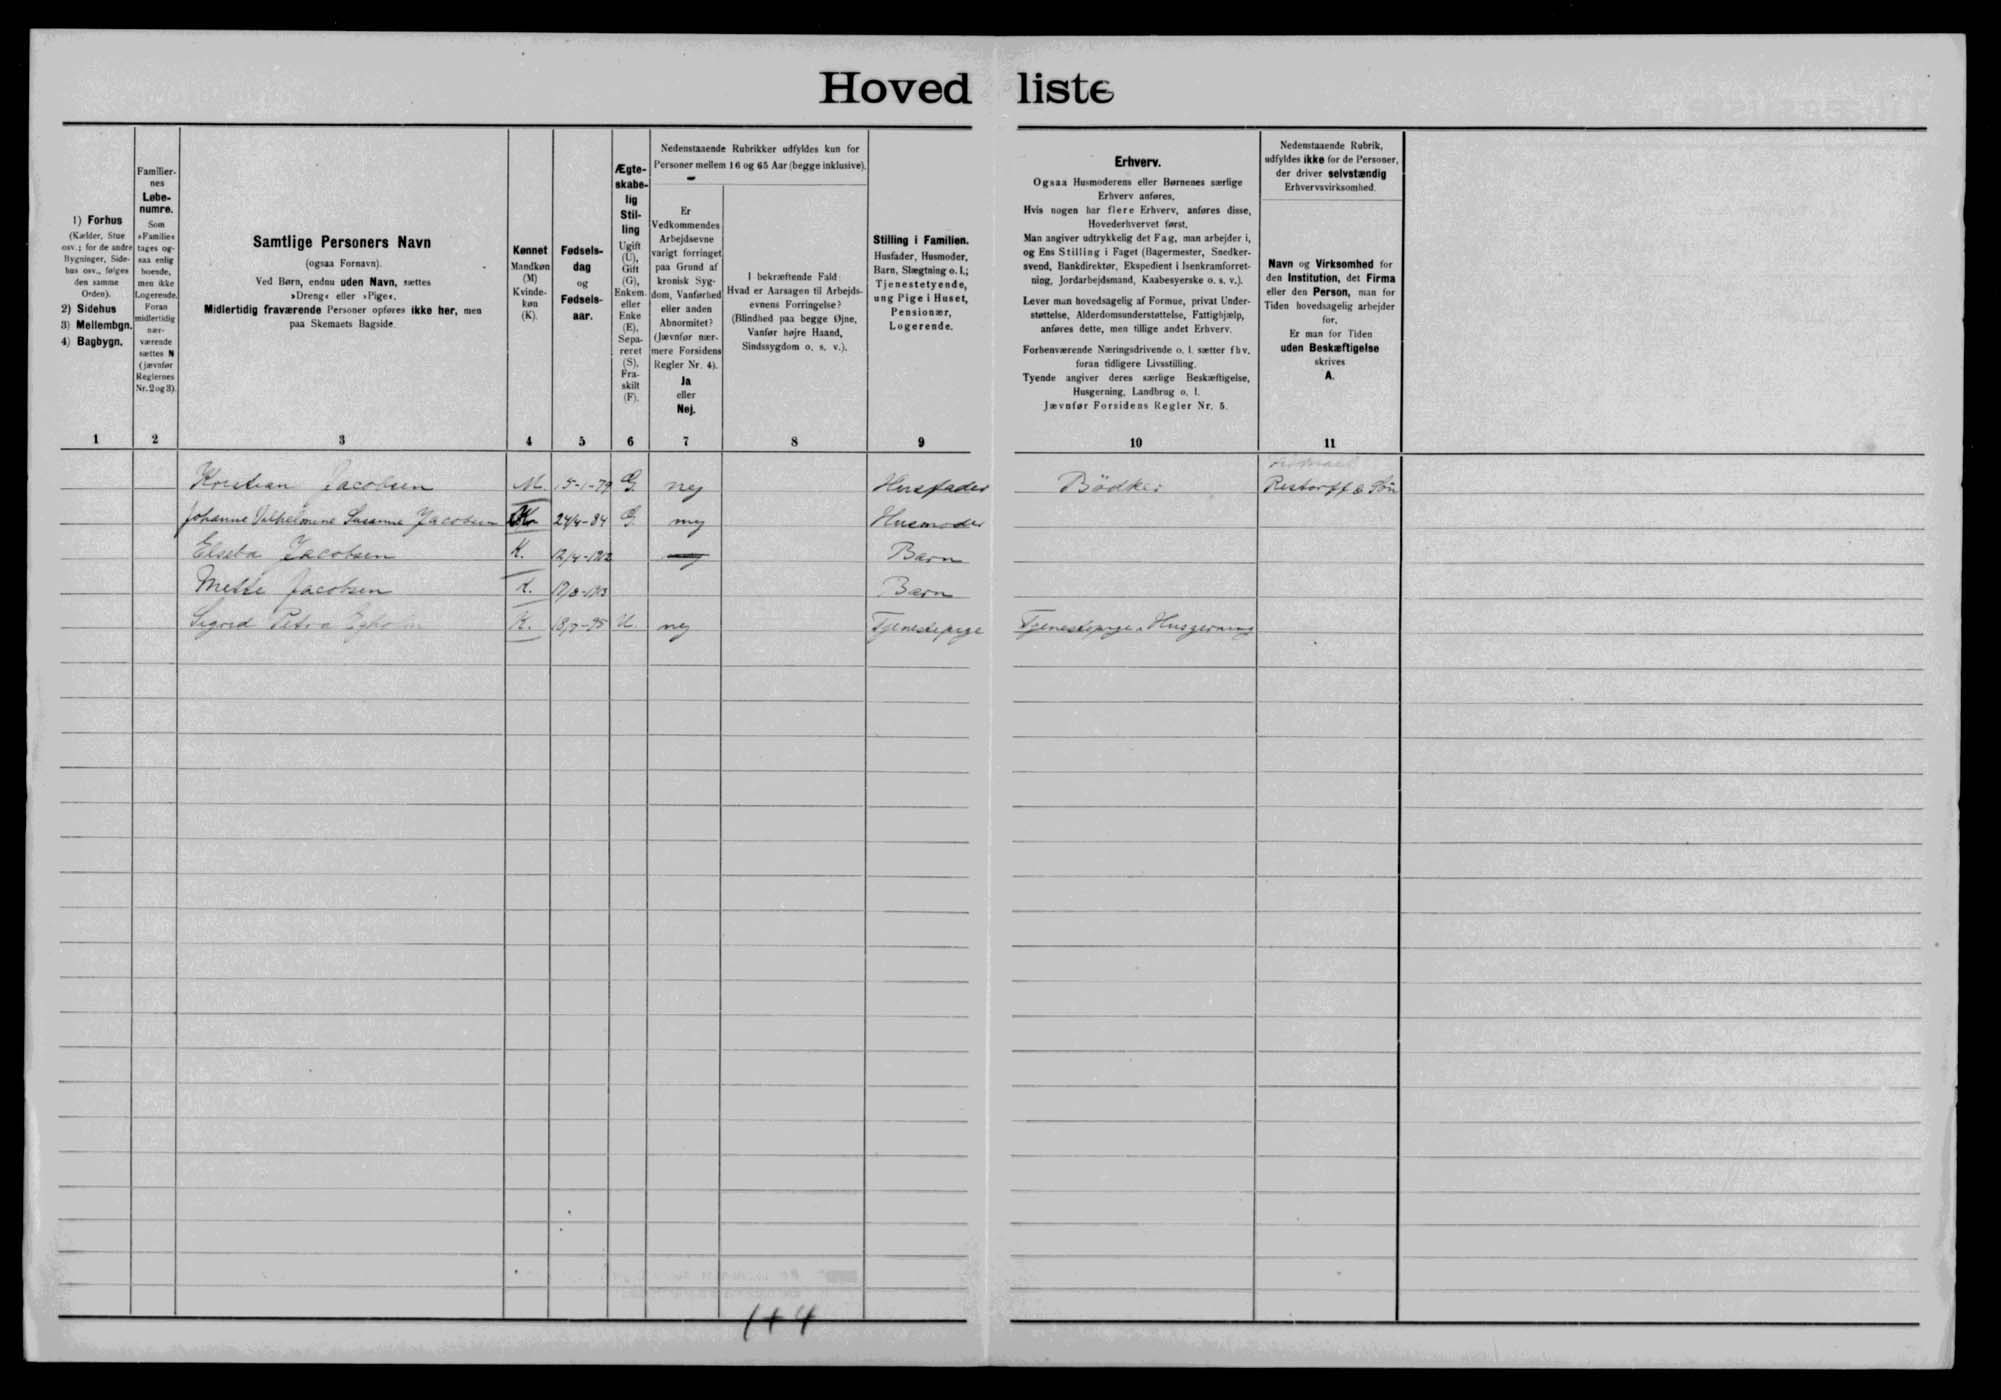 Hovedliste
1) Forhus
(Kælder, Stue
osv.; for de andre
Bygninger, Side-
hus osv., følges
den samme
Orden).
2) Sidehus
3) Mellembgn.
4) Bagbygn.
Familier-
nes
Løbe-
numre.
Som
»Familie«
tages og-
saa enlig
boende,
men ikke
Logerende.
Foran
midlertidig
nær-
værende
sættes N
(jævnfør
Reglernes
Nr. 2 og 3).
Samtlige Personers Navn
(ogsaa Fornavn).
Ved Børn, endnu uden Navn, sættes
»Dreng« eller »Pige«.
Midlertidig fraværende Personer opføres ikke her, men
paa Skemaets Bagside.
Kønnet
Mandkøn
(M)
Kvinde-
køn
(K).
Fødsels-
dag
og
Fødsels-
aar.
Ægte-
skabe-
lig
Stil-
ling
Ugift
(U),
Gift
(G),
Enkem.
eller
Enke
(E),
Sepa-
reret
(S),
Fra-
skilt
(F).
Nedenstaaende Rubrikker udfyldes kun for
Personer mellem 16 og 65 Aar (begge inklusive).
Er
Vedkommendes
Arbejdsevne
varigt forringet
paa Grund af
kronisk Syg-
dom, Vanførhed
eller anden
Abnormitet?
(Jævnfør nær-
mere Forsidens
Regler Nr. 4).
Ja
eller
Nej.
I bekræftende Fald:
Hvad er Aarsagen til Arbejds-
evnens Forringelse?
(Blindhed paa begge Øjne,
Vanfør højre Haand,
Sindssygdom o. s. v.).
Stilling i Familien.
Husfader, Husmoder,
Barn, Slægtning o. l.;
Tjenestetyende,
ung Pige i Huset,
Pensionær,
Logerende.
Erhverv.
Ogsaa Husmoderens eller Børnenes særlige
Erhverv anføres,
Hvis nogen har flere Erhverv, anføres disse,
Hovederhvervet først.
Man angiver udtrykkelig det Fag, man arbejder i,
og Ens Stilling i Faget (Bagermester, Snedker-
svend, Bankdirektør, Ekspedient i Isenkramforret-
ning, Jordarbejdsmand, Kaabesyerske o. s. v.).
Lever man hovedsagelig af Formue, privat Under-
støttelse, Alderdomsunderstøttelse, Fattighjælp,
anføres dette, men tillige andet Erhverv.
Forhenværende Næringsdrivende o. l. sætter fhv.
foran tidligere Livsstilling.
Tyende angiver deres særlige Beskæftigelse,
Husgerning, Landbrug o. l.
Jævnfør Forsidens Regler Nr. 5.
Nedenstaaende Rubrik,
udfyldes ikke for de Personer,
der driver selvstændig
Erhvervsvirksomhed.
Navn og Virksomhed for
den Institution, det Firma
eller den Person, man for
Tiden hovedsagelig arbejder
for,
Er man for Tiden
uden Beskæftigelse
skrives
A.
1 2 3 4 5 6 7 8 9 10 11
Kristian Jacobsen M. 15-1-79 G. nej Husfader Bödker Restorff & Sön
Johanne Vilhelmine Susanne Jacobsen K 24/4-84 G. nej Husmoder
Elseba Jacobsen K. 12/4-1912 Barn
Mette Jacobsen K. Barn
Sigrid Petra K. U. nej Tjenestepige Tjenestepige Husgerning
1+4